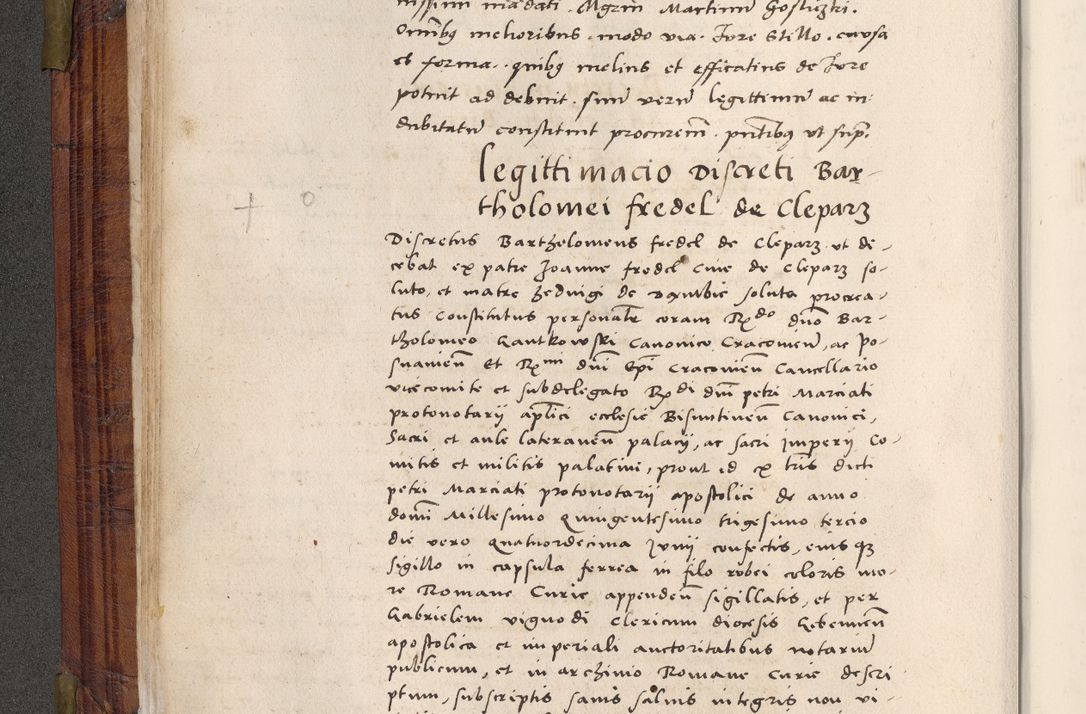 nissimi mãdati. Mgrm Martinũ Gosticzki.
Omĩbꝫ melioribus. modo via. Jure Stillo. causa
et forma. quibꝫ melius et efficatius de Jure
potuit ad debuit. suũ verũ legittimũ ac in:
dubitatũ constituit procurem̃. pñtibꝫ ut supra.
Legittimacio Discreti Bar-
tholomei fredel de Cleparz
Discretus Bartholomeus fredel de Cleparz ut de-
cebat ex patre Joanne fredel Cive de Cleparz so-
luto, et matre Hedvigi de soluta procrea-
tus Constitutus personalr̃ coram R̃do dño Bar-
tholomeo Gantkowski Canonico Cracovieñ, ac Po-
snanieñ Et R̃mi dñi Ep̃i Cracovieñ Cancellario
vicecomite et subdelegato R̃di dñi petri Marciati
protonotarii ap̃lici ecclesie Bisuntineñ Canonici,
Sacri et aule lateraneñ palacij, ac sacri Imperij Co-
mitis et militis palatini, prout id ex l̃ris dicti
petri Marciati protonotarij apostolici de anno
domĩ Millesimo Quingentesimo trigesimo tercio
die vero Quatuordecima Junij confectis, eiusqꝫ
sigillo in capsula ferrea in filo rubei coloris mo-
re Romane Curie appendeñ sigillatis, et per
Gabrielem viguodi Clericum diocesis Gebenneñ
apostolica et imperiali auctoritatibus notariũ
publicum, et in archivio Romane Curie descri
ptum, subscriptis sanis salvis integris non vi-